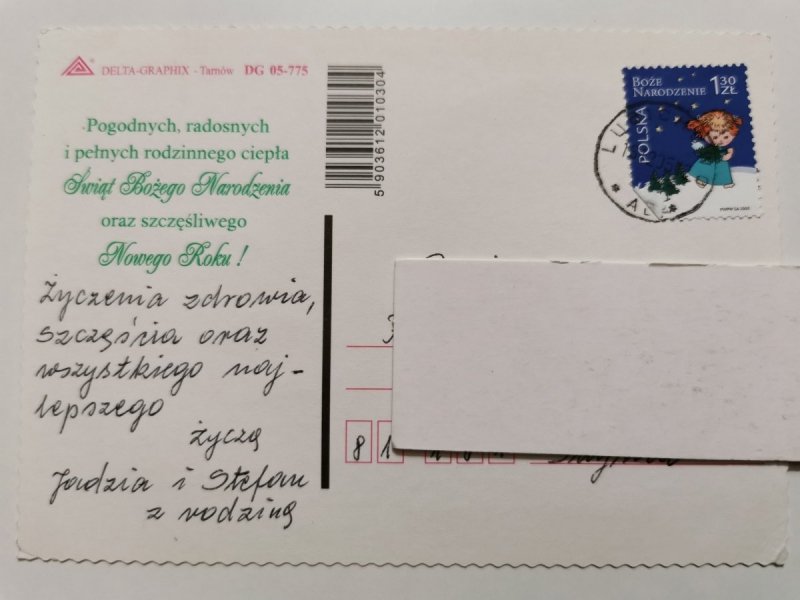 DELTA-GRAPHIX - Tarnów DG 05-775
Pogodnych, radosnych
i pełnych rodzinnego ciepła
Świąt Bożego Narodzenia
oraz szczęśliwego
Nowego Roku !
Życzenia zdrowia,
szczęścia oraz
wszystkiego naj-
lepszego
życzą
Jadzia i Stefan
z rodziną
5 903612 010304
BOŻE
NARODZENIE
1,30
ZŁ
POLSKA
81